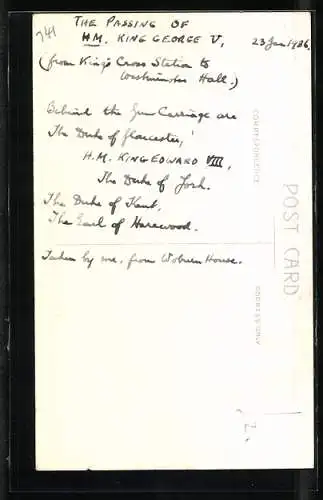 741
THE PASSING OF
H.M. KING GEORGE V, 23 Jan 1936.
(from King's Cross Station to
Westminster Hall.)
Behind the Gun Carriage are
The Duke of Gloucester,
H.M. KING EDWARD VIII,
The Duke of York.
The Duke of Kent,
The Earl of Harewood.
Taken by me, from Woburn House.
POST CARD
CORRESPONDENCE
ADDRESS ONLY